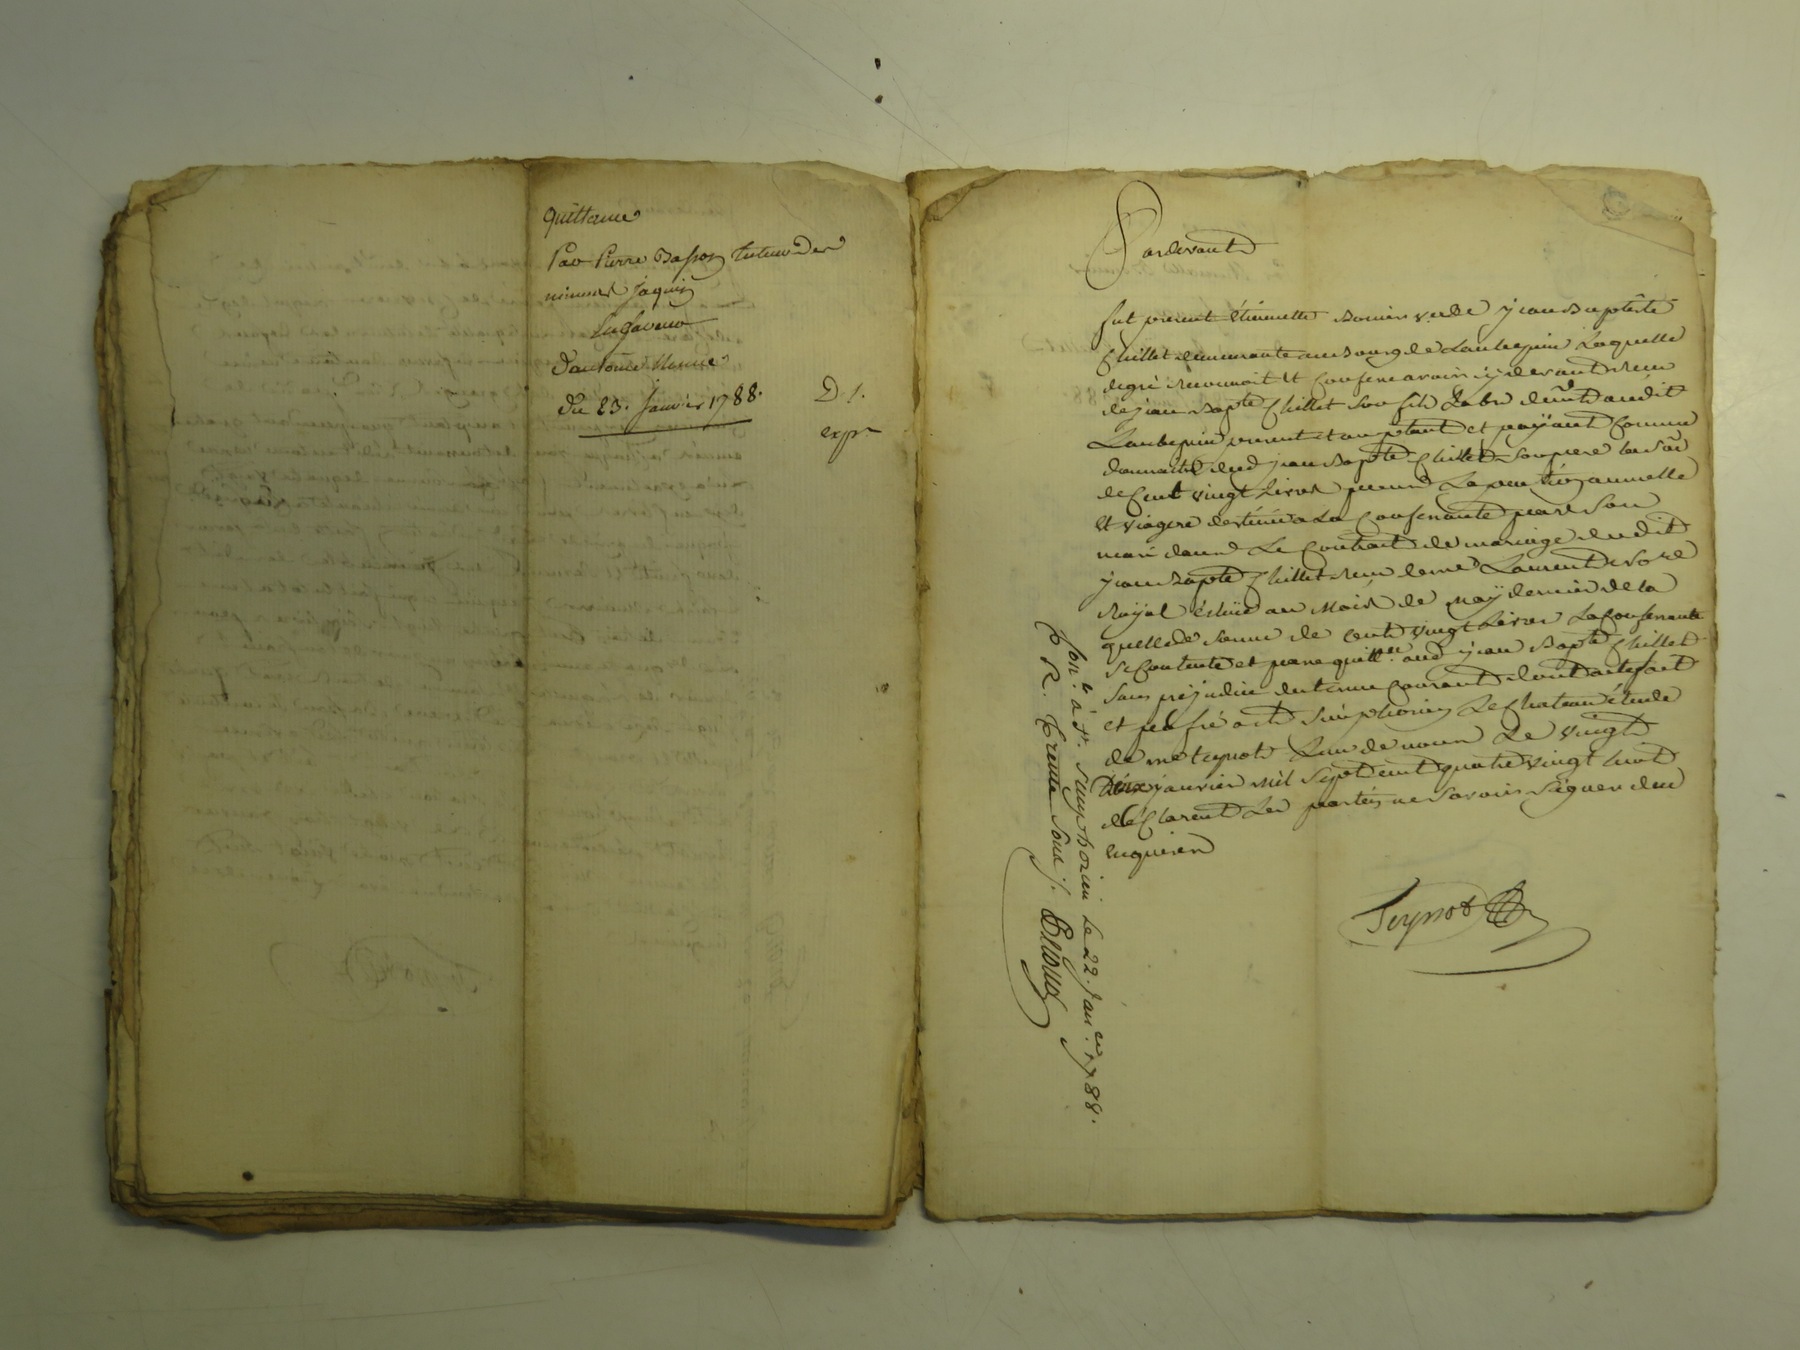 quittance
Par Pierre Basson tuteur des
mineurs Jaquin
En faveur
d'antoine
du 23. Janvier 1788.
D /.
exp.
Pardevant
fut present étiennette veuve jean Baptiste
Chillet demeurante au Bourg de Laubepin Laquelle
de gré reconnoit et confesse avoir cy devant reçu
de jean Bapte Chillet son fils Labr demt audit
Laubepin present et acceptant et payant comme
donnataire dud jean Bapte Chillet son pere la Som
de Cent vingt Livres pour La pension annuelle
et viagere destinée a La Confessante par Son
mari dans Le Contrat de mariage dudit
jean Bapte Chillet reçu de me Laurent no.re
Royal échue au Mois de may dernier de la
quelle de somme de cent vingt Livres La Confessante
Se Contente et passe quittce aud jean Bapte Chillet
Sans préjudice du terme courant dont acte fait
et passé a st Simphorien Le Chateau étude
de me teynot L'un de nous Le vingt
Deux janvier mil Sept cent quatre vingt huit
déclarent Les parties ne Savoir Signer de ce
enquises
Teynot
Con.le à St. Simphorien Le 22. Janv.er 1788.
R. trente Sous /.